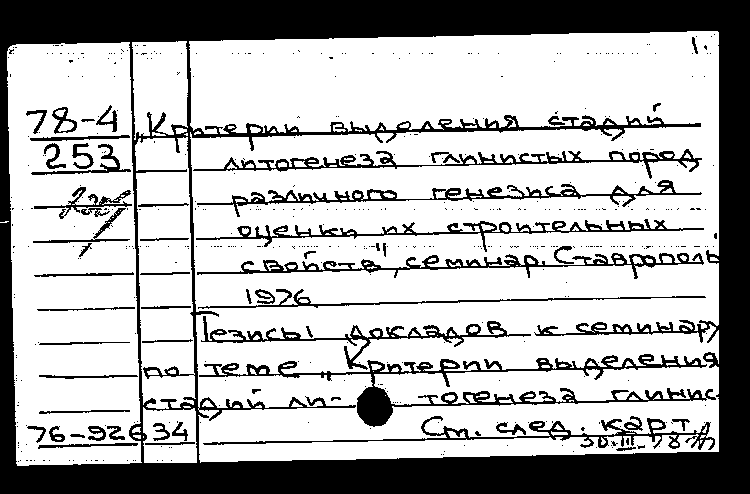 1.
78-4 „Критерии выделения стадий
253 литогенеза глинистых пород
различного генезиса для
оценки их строительных
свойств", семинар. Ставрополь
1976
Тезисы докладов к семинару
по теме „Критерии выделения
стадий ли- тогенеза глинис-
76-92634 См. след. карт.
30.III.78